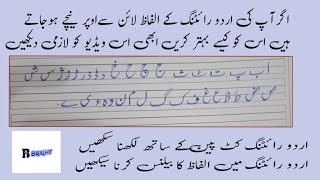 اگر آپ کی اردو رائٹنگ کے الفاظ لائن سے اوپر نیچے ہو جاتے
ہیں اس کو کیسے بہتر کریں ابھی اس ویڈیو کو لازمی دیکھیں
ا ب پ ت ٹ ث ج چ ح خ د ڈ ذ ر ڑ ز ژ س ش
ص ض ط ظ ع غ ف ک گ ل م ن و ہ ء ی ے۔
اردو رائٹنگ کٹ پین کے ساتھ لکھنا سکھیں
R
BRIGHT
اردو رائٹنگ میں الفاظ کا بیلنس کرنا سیکھیں